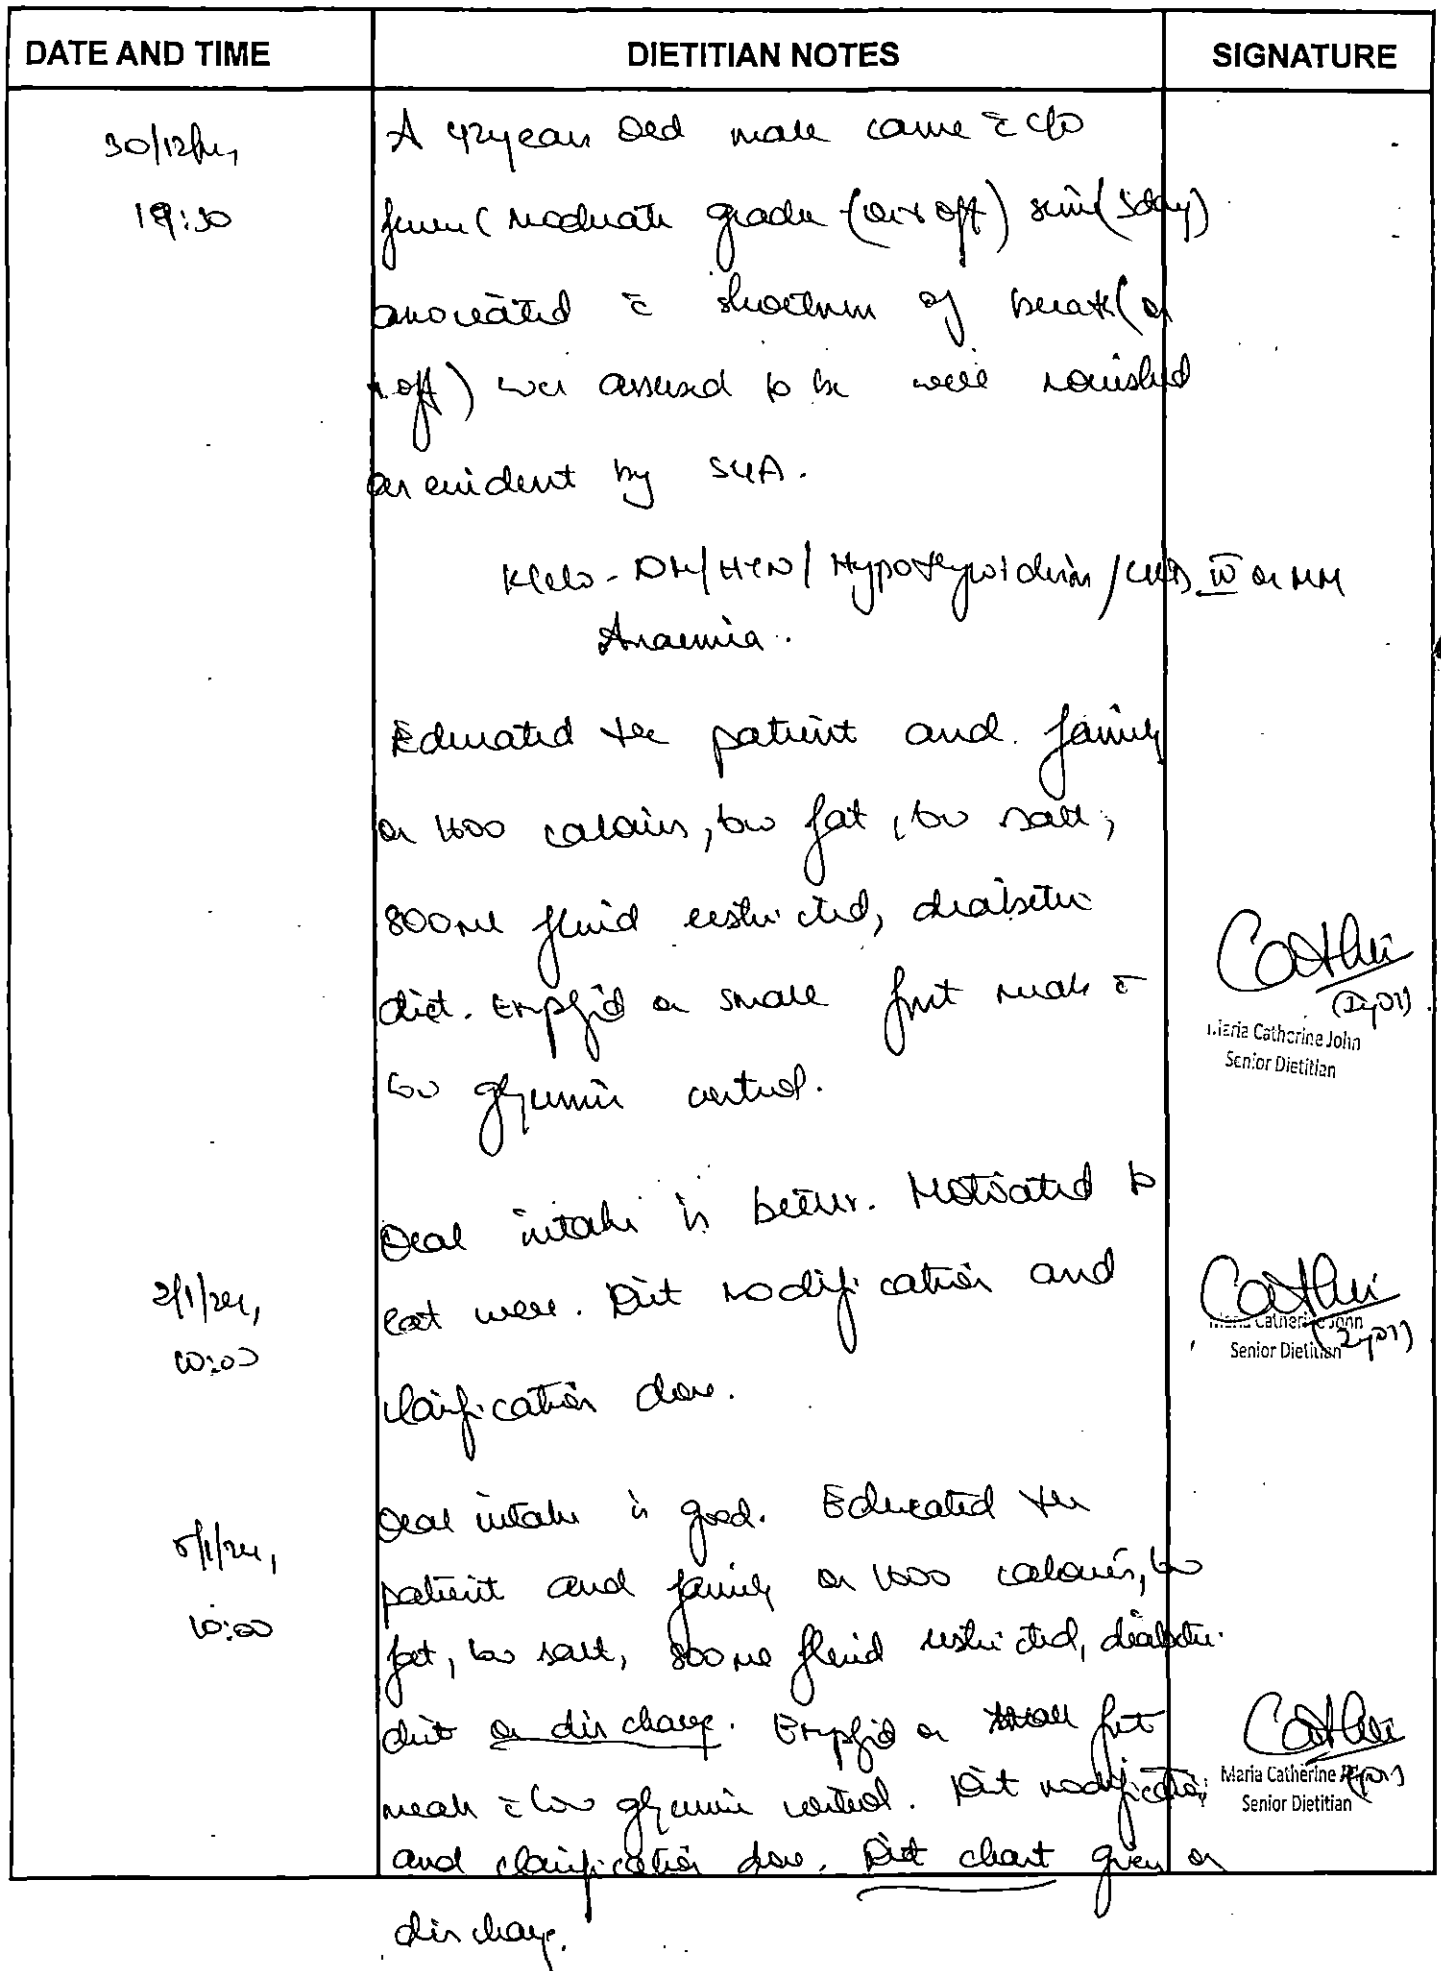 DATE AND TIME DIETITIAN NOTES SIGNATURE
30/12/
19:30
A 42 year old male came c̄ c/o
fever (moderate grade (on & off) since (5day)
associated c̄ shortness of breath (on
& off) was assessed to be well nourished
as evident by SGA.
K/c/o - DM/HTN/Hypothyroidism/CKD IV on MM
Anaemia.
Educated the patient and family
on 1600 calories, low fat, low salt,
800ml fluid restricted, diabetic
diet. Emp'd on small freq meals c̄
low glycemic control.
Cathu
Maria Catherine John
Senior Dietitian
2/1/24,
10:00
Oral intake is better. Motivated to
eat well. Diet modification and
clarification done.
Cathu
Maria Catherine John
Senior Dietitian
5/1/24,
10:00
Oral intake is good. Educated the
patient and family on 1600 calories, low
fat, low salt, 800ml fluid restricted, diabetic
diet on discharge. Emp'd on small freq
meals c̄ low glycemic control. Diet modification
and clarification done. Diet chart given on
discharge.
Cathu
Maria Catherine
Senior Dietitian